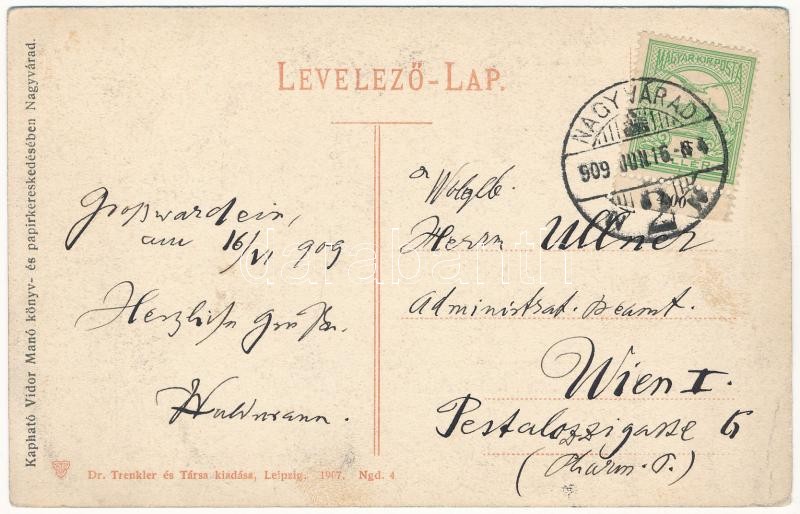 LEVELEZŐ-LAP.
MAGYAR KIR. POSTA
NAGYVÁRAD
909 JUN 16
Großwardein,
am 16/VI 909
Herzliche Grüße.
Waldmann.
Wolglb.
Herrn Ullner
Administrat. Beamt.
Wien I.
Pestalozzigasse 6
(Pharm. P.)
Kapható Vidor Manó könyv- és papirkereskedésében Nagyvárad.
Dr. Trenkler és Társa kiadása, Leipzig. 1907. Ngd. 4
darabanth